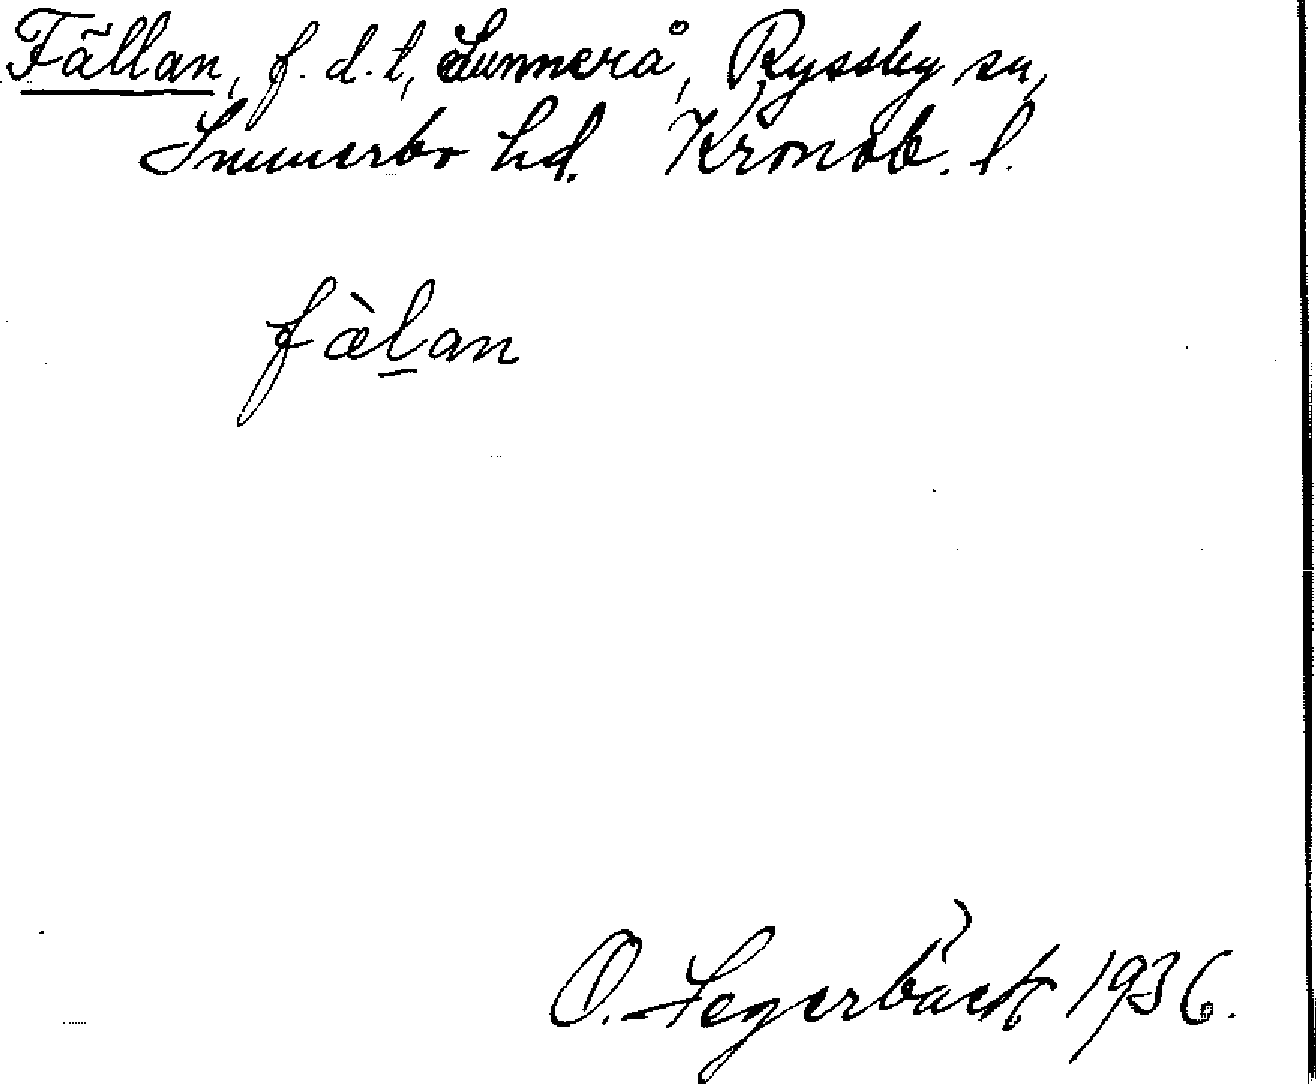 Fällan, f. d. t, Sunnerå, Ryssby sn,
Sunnerbo hd. Kronob. l.
fàlan
O. Segerbäck 1936.